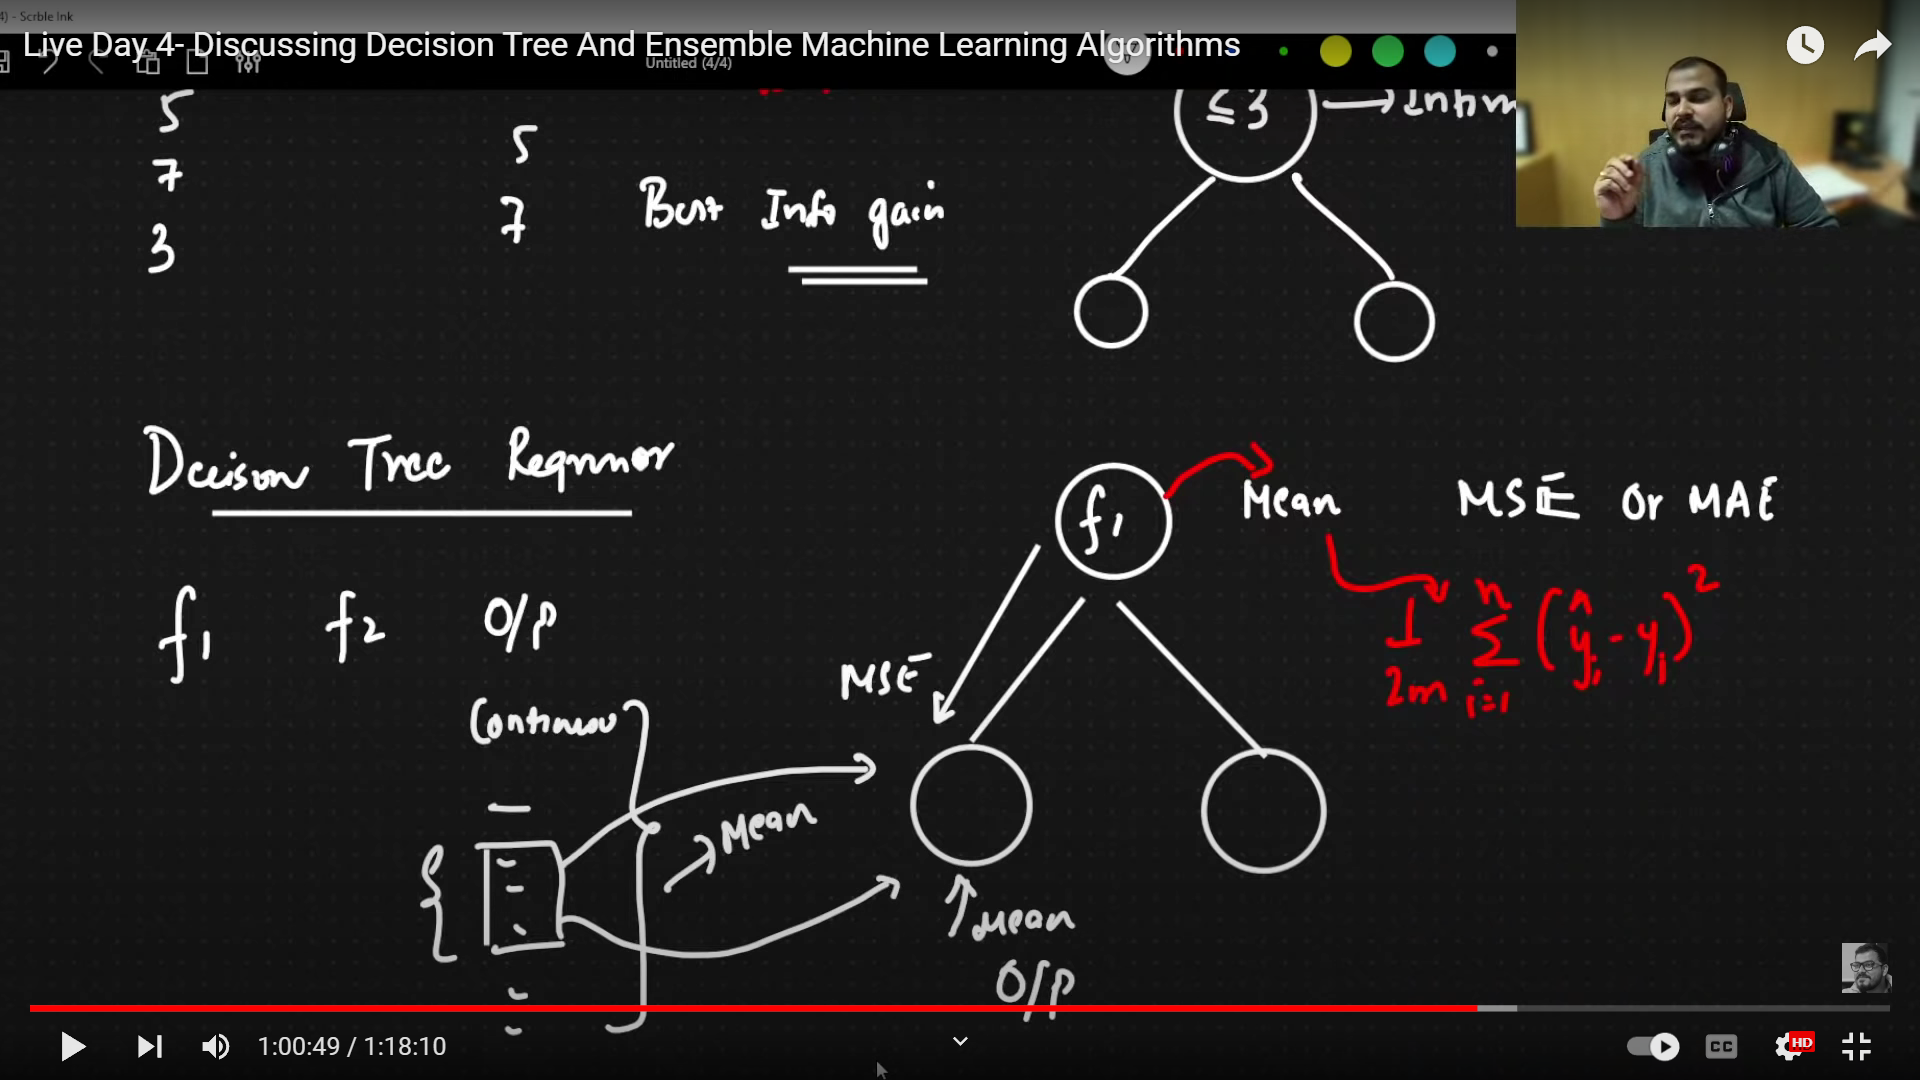 4) - Scrble Ink
Live Day 4- Discussing Decision Tree And Ensemble Machine Learning Algorithms
Untitled (4/4)
≤ 3
5
7
3
5
7
Best Info gain
Decison Tree Regrmor
f1 f2 O/P
Continuou
Mean
f1
Mean
MSE Or MAE
1/2m n Σ i=1 (ŷi - yi)2
MSE
Mean
O/P
1:00:49 / 1:18:10
CC
HD